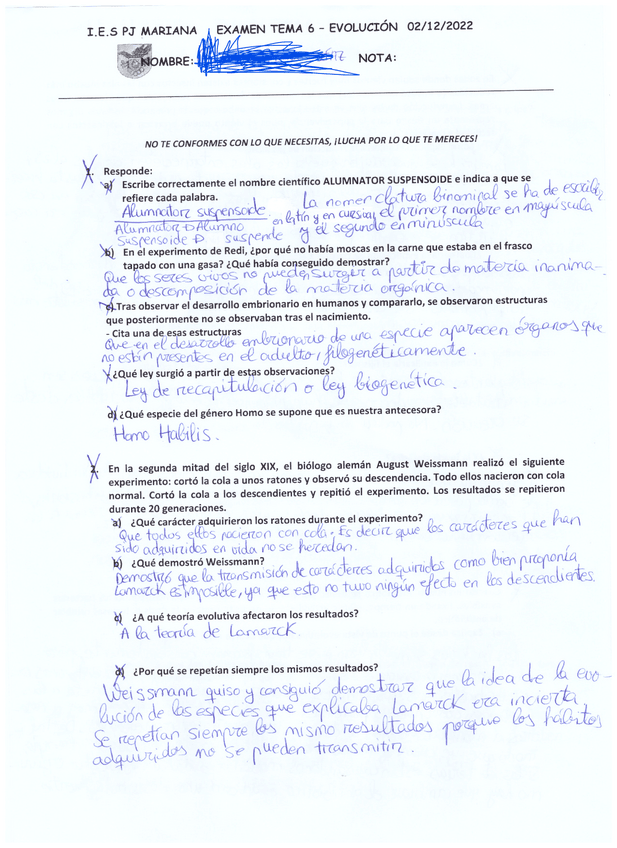 I.E.S PJ MARIANA EXAMEN TEMA 6 – EVOLUCIÓN 02/12/2022
NOMBRE: NOTA:
NO TE CONFORMES CON LO QUE NECESITAS, ¡LUCHA POR LO QUE TE MERECES!
1. Responde:
a) Escribe correctamente el nombre científico ALUMNATOR SUSPENSOIDE e indica a que se
refiere cada palabra.
La nomenclatura binominal se ha de escribir
Alumnator suspensoide en latín y en cursiva, el primer nombre en mayúscula
Alumnator → Alumno y el segundo en minúscula
Suspensoide → suspende
b) En el experimento de Redi, ¿por qué no había moscas en la carne que estaba en el frasco
tapado con una gasa? ¿Qué había conseguido demostrar?
Que los seres vivos no pueden surger a partir de materia inanima-
da o descomposición de la materia orgánica.
c) Tras observar el desarrollo embrionario en humanos y compararlo, se observaron estructuras
que posteriormente no se observaban tras el nacimiento.
- Cita una de esas estructuras
Que en el desarrollo embrionario de una especie aparecen órganos que
no están presentes en el adulto, filogenéticamente.
¿Qué ley surgió a partir de estas observaciones?
Ley de recapitulación o ley biogenética.
d) ¿Qué especie del género Homo se supone que es nuestra antecesora?
Homo Habilis.
2. En la segunda mitad del siglo XIX, el biólogo alemán August Weissmann realizó el siguiente
experimento: cortó la cola a unos ratones y observó su descendencia. Todo ellos nacieron con cola
normal. Cortó la cola a los descendientes y repitió el experimento. Los resultados se repitieron
durante 20 generaciones.
a) ¿Qué carácter adquirieron los ratones durante el experimento?
Que todos ellos nacieron con cola. Es decir que los carácteres que han
sido adquiridos en vida no se heredan.
b) ¿Qué demostró Weissmann?
Demostró que la transmisión de carácteres adquiridos como bien proponía
Lamarck es imposible, ya que esto no tuvo ningún efecto en los descendientes.
c) ¿A qué teoría evolutiva afectaron los resultados?
A la teoría de Lamarck.
d) ¿Por qué se repetían siempre los mismos resultados?
Weissmann quiso y consiguió demostrar que la idea de la evo-
lución de las especies que explicaba Lamarck era incierta.
Se repetían siempre los mismo resultados porque los hábitos
adquiridos no se pueden transmitir.